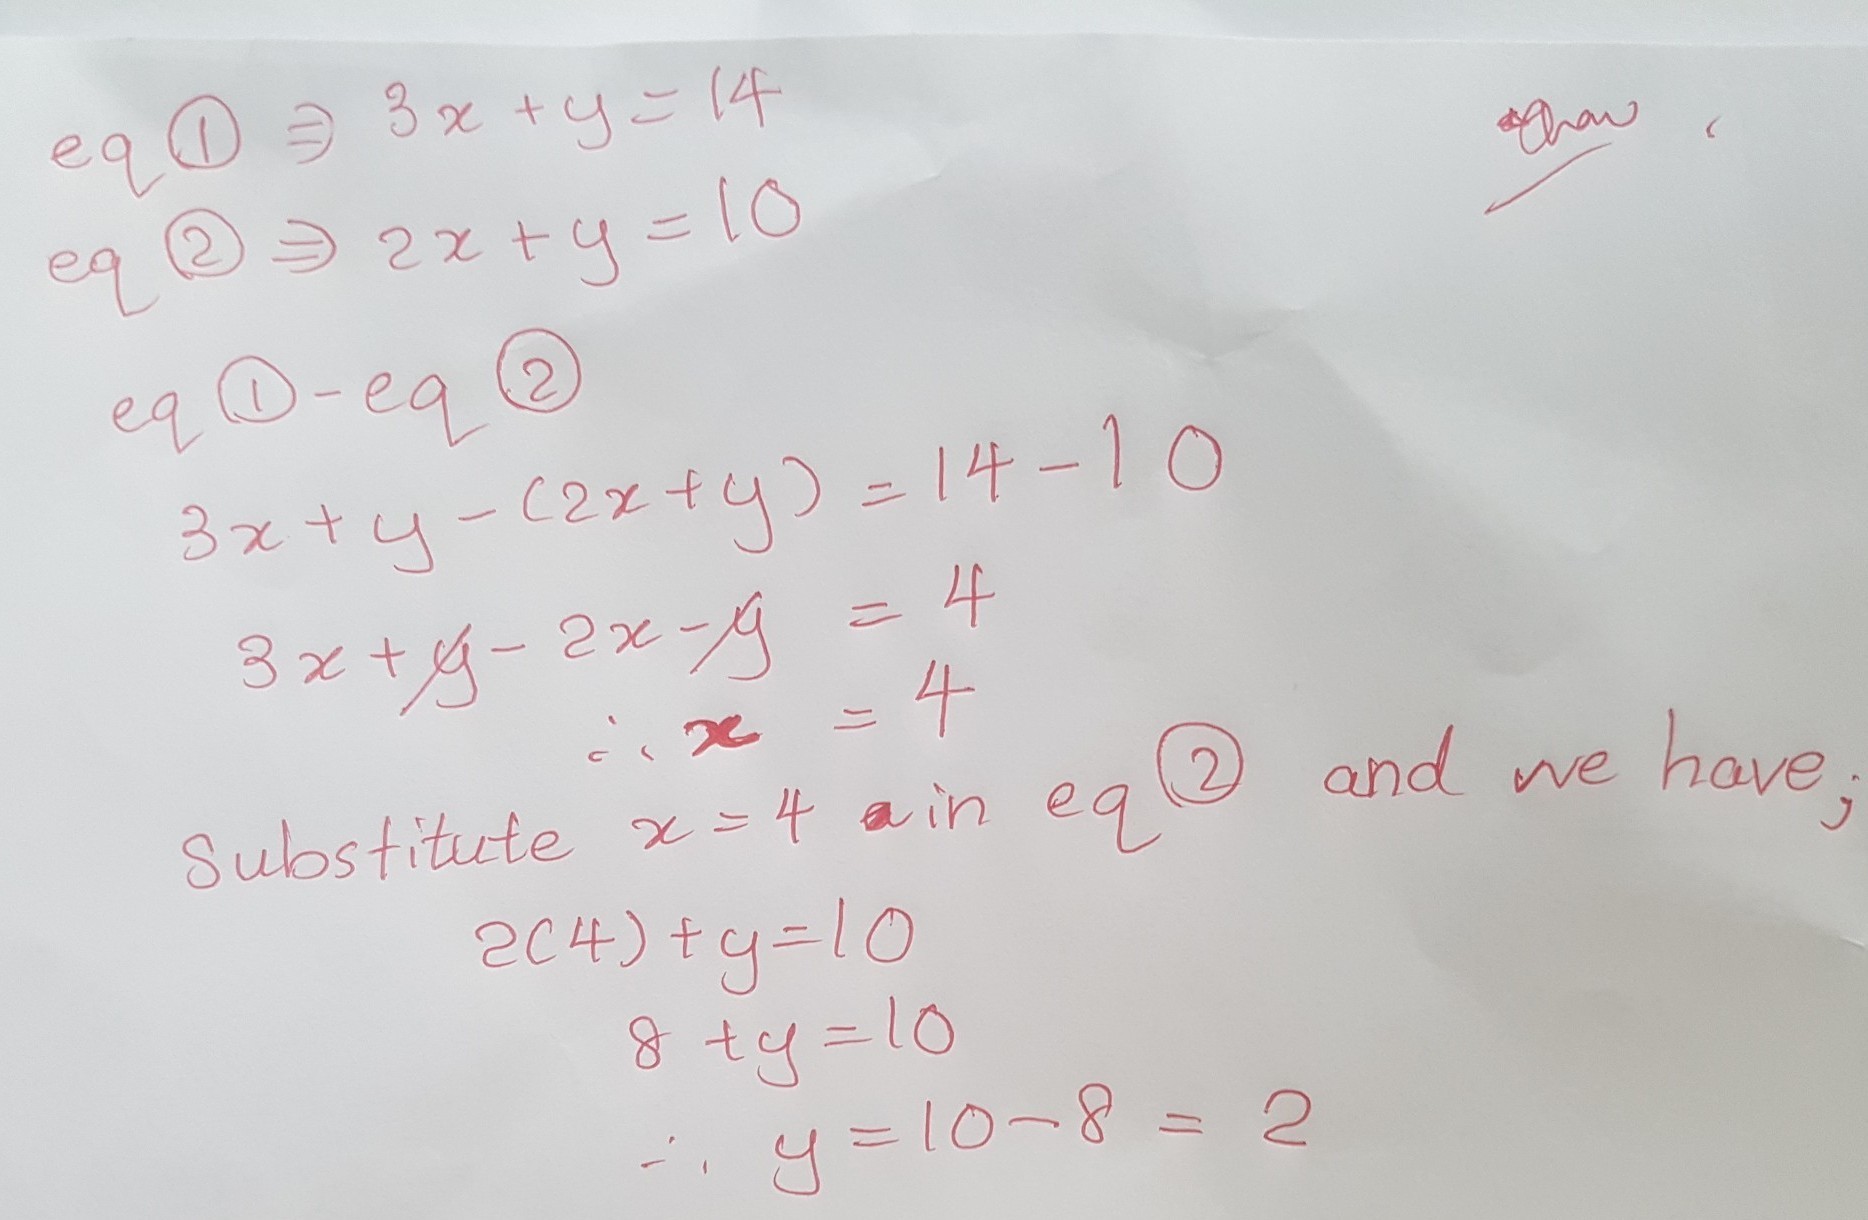 eq ① ⇒ 3x + y = 14
eq ② ⇒ 2x + y = 10
eq ① - eq ②
3x + y - (2x + y) = 14 - 10
3x + y - 2x - y = 4
∴ x = 4
Substitute x = 4 in eq ② and we have;
2(4) + y = 10
8 + y = 10
∴ y = 10 - 8 = 2